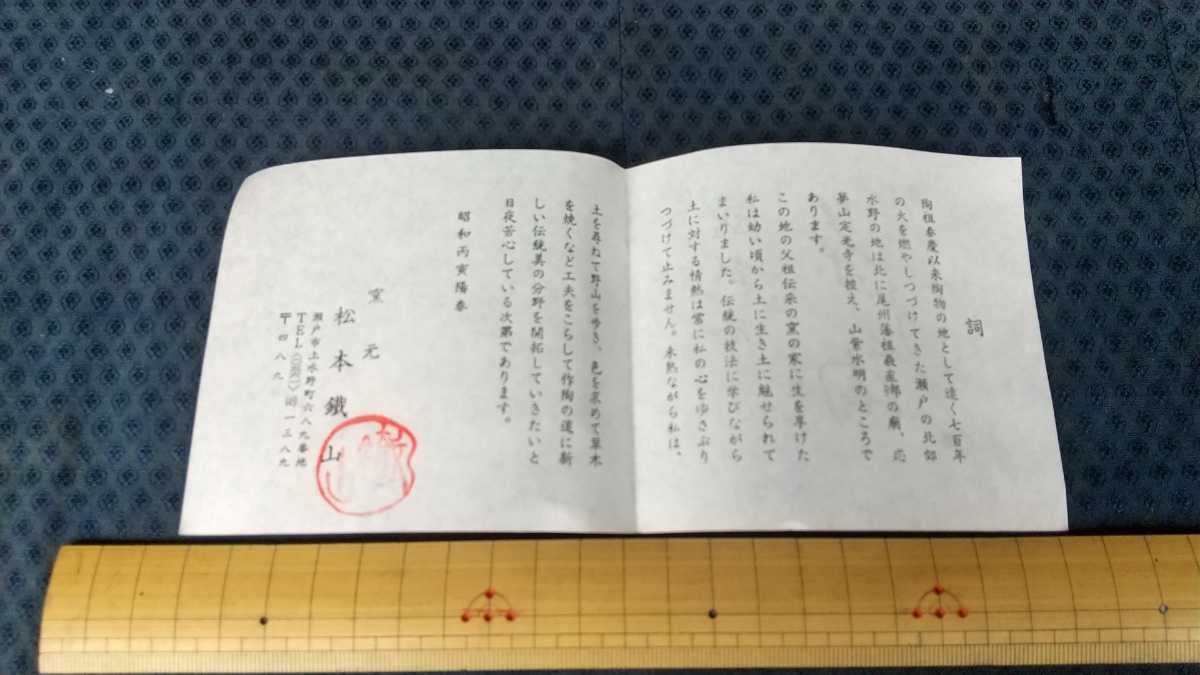 詞
陶祖春慶以来陶物の地として遠く七百年
の火を燃やしつづけてきた瀬戸の北部
水野の地は北に尾州藩祖義直郷の廟、応
夢山定光寺を控え、山紫水明のところで
あります。
この地の父祖伝来の窯の家に生を享けた
私は幼い頃から土に生き土に魅せられて
まいりました。伝統の技法に学びながら
土に対する情熱は常に私の心をゆさぶり
つづけて止みません。未熟ながら私は、
土を尋ねて野山を歩き、色を求めて草木
を焼くなど工夫をこらして作陶の道に新
しい伝統美の分野を開拓していきたいと
日夜苦心している次第であります。
昭和丙寅陽春
窯元
松本鐵山
瀬戸市上水野町六八九番地
TEL(〇五六一)㈣一三八九
〒四八九